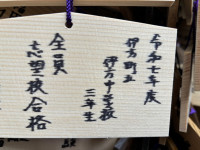 令和七年度
伊方町立
伊方中学校
三年生
全員
志望校合格